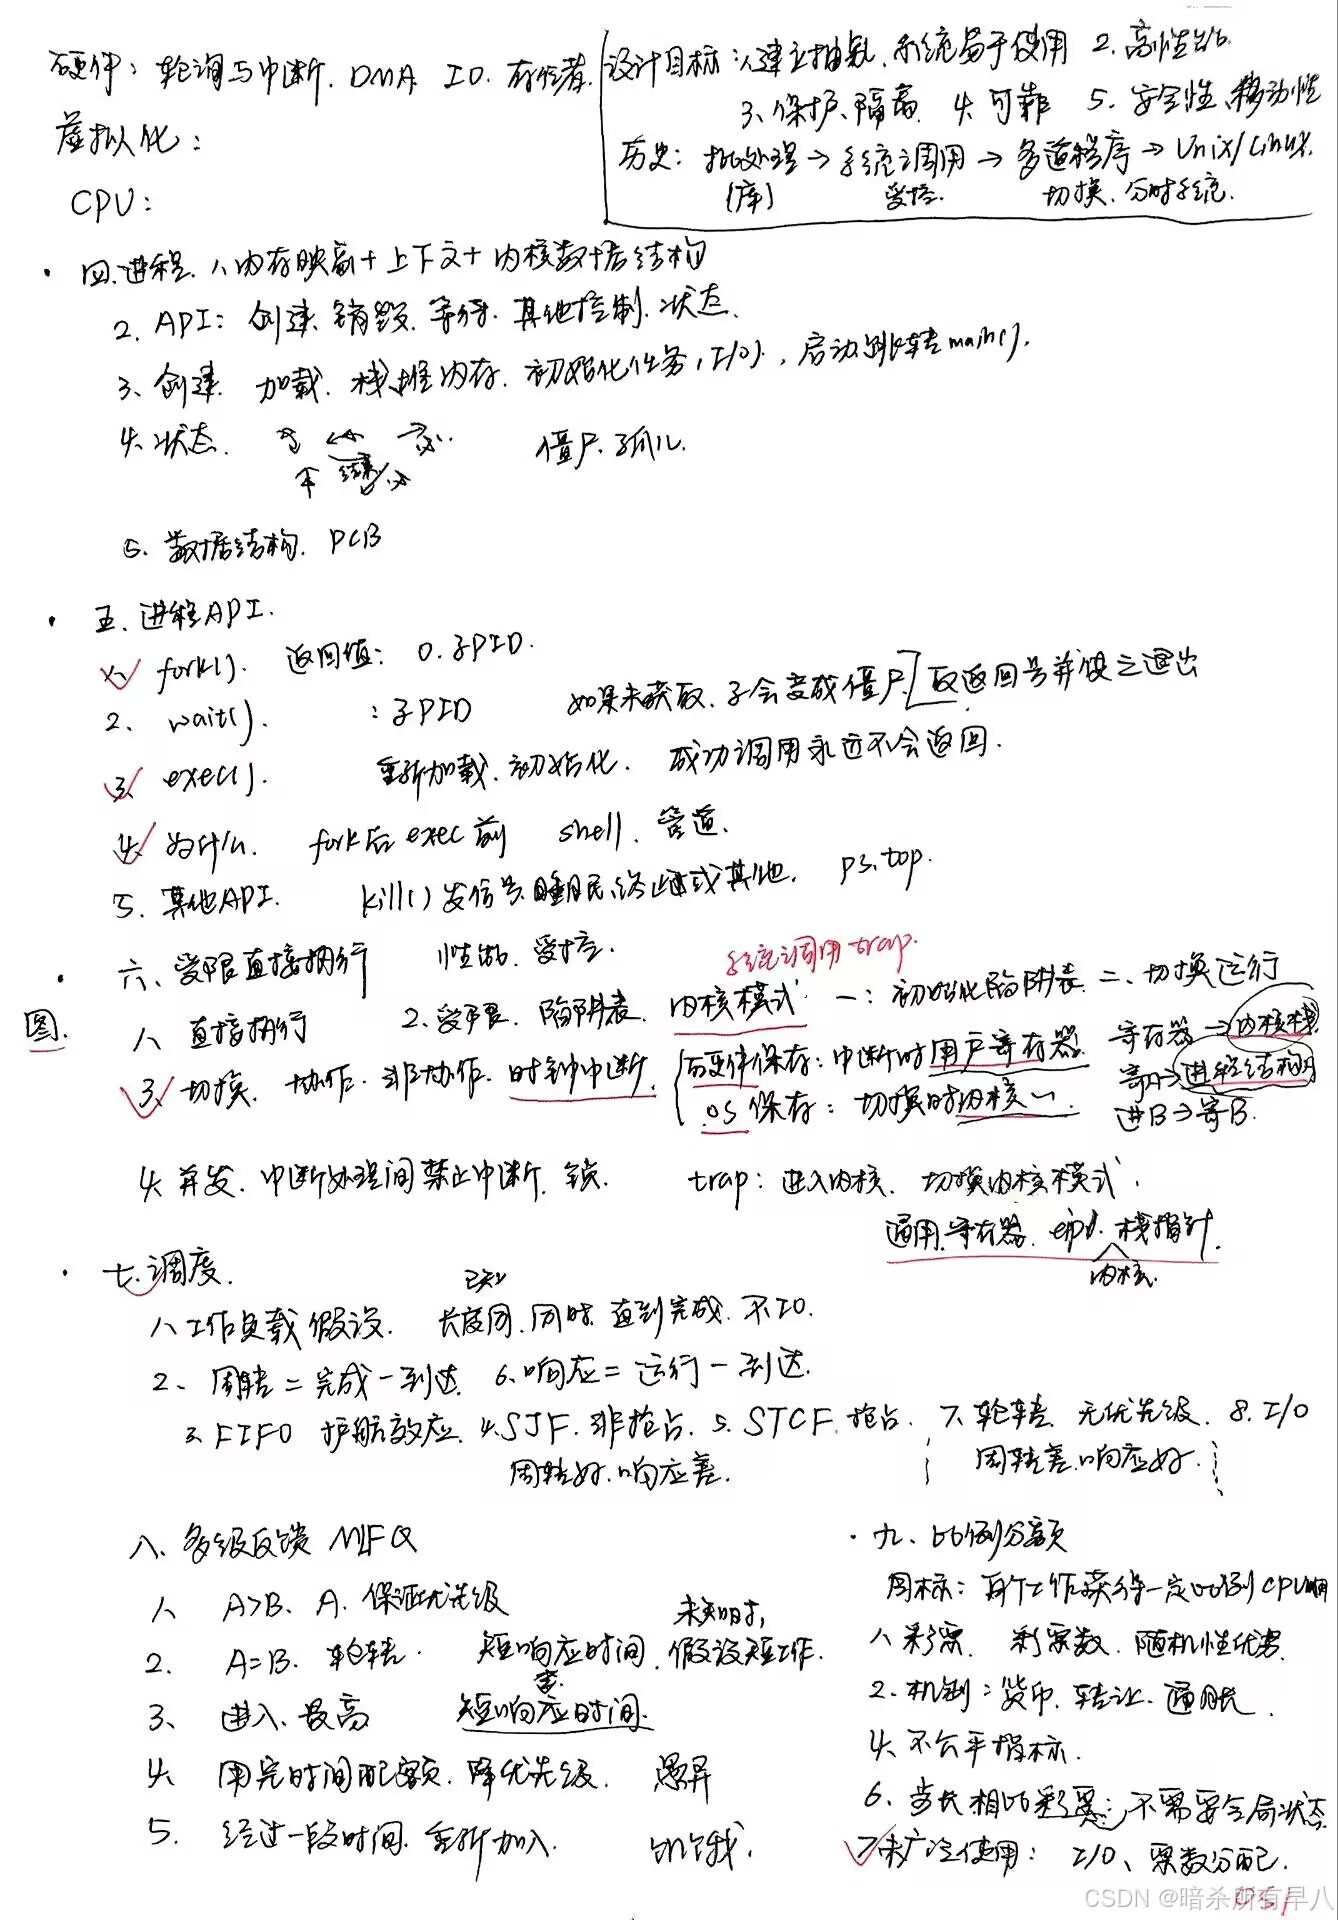 硬件：轮询与中断. DMA IO. 存储器.
设计目标：1.建立抽象、系统易于使用 2. 高性能
3、保护、隔离 4. 可靠 5. 安全性、移动性
历史：批处理→系统调用→多道程序→Unix/Linux.
(库) 受控. 切换、分时系统.
虚拟化：
CPU：
· 四.进程. 1.内存映象+上下文+内核数据结构
2. API：创建 销毁. 等待. 其他控制. 状态.
3、创建. 加载. 栈、堆内存. 初始化任务(I/O)，启动跳转main().
4、状态. 结束 僵尸、孤儿.
5. 数据结构. PCB
· 五. 进程API.
1、fork(). 返回值：0.子PID.
2. wait(). ：子PID 如果未获取. 子会变成僵尸. 取返回号并使之退出
3. exec(). 重新加载. 初始化. 成功调用永远不会返回.
4. 为什么. fork后exec前 shell. 管道.
5. 其他API. kill()发信号.睡眠、终止或其他. ps.top.
· 六. 受限直接执行 性能. 受控. 系统调用trap.
图. 1、直接执行 2.受限. 陷阱表. 内核模式 一：初始化陷阱表. 二、切换运行
3. 切换. 协作. 非协作. 时钟中断. 硬件保存：中断时用户寄存器. 寄存器→内核栈
寄A→进程结构A
OS保存：切换时内核〃. 进B→寄B.
4. 并发. 中断处理间禁止中断. 锁. trap：进入内核. 切换内核模式.
通用.寄存器. 栈指针.
内核.
· 七.调度.
已知
1、工作负载假设. 长度同.同时.直到完成.不IO.
2、周转=完成-到达. 6.响应=运行-到达.
3. FIFO 护航效应. 4.SJF. 非抢占. 5. STCF. 抢占. 7. 轮转. 无优先级. 8. I/O
周转好.响应差. 周转差.响应好.
八. 多级反馈 MLFQ
1、A>B. A. 保证优先级
未知时，
2. A=B. 轮转. 短响应时间. 假设短工作.
3、进入.最高 短响应时间.
4、用完时间配额. 降优先级. 愚弄
5. 经过一段时间. 重新加入. 饥饿.
· 九. 比例份额
目标：每个工作获得一定比例CPU时间
1、彩票 彩票数. 随机性优势.
2. 机制：货币. 转让. 通胀.
4、不公平指标.
6. 步长相比彩票：不需要全局状态.
7.未广泛使用：I/O、票数分配.
CSDN @暗杀所有早八